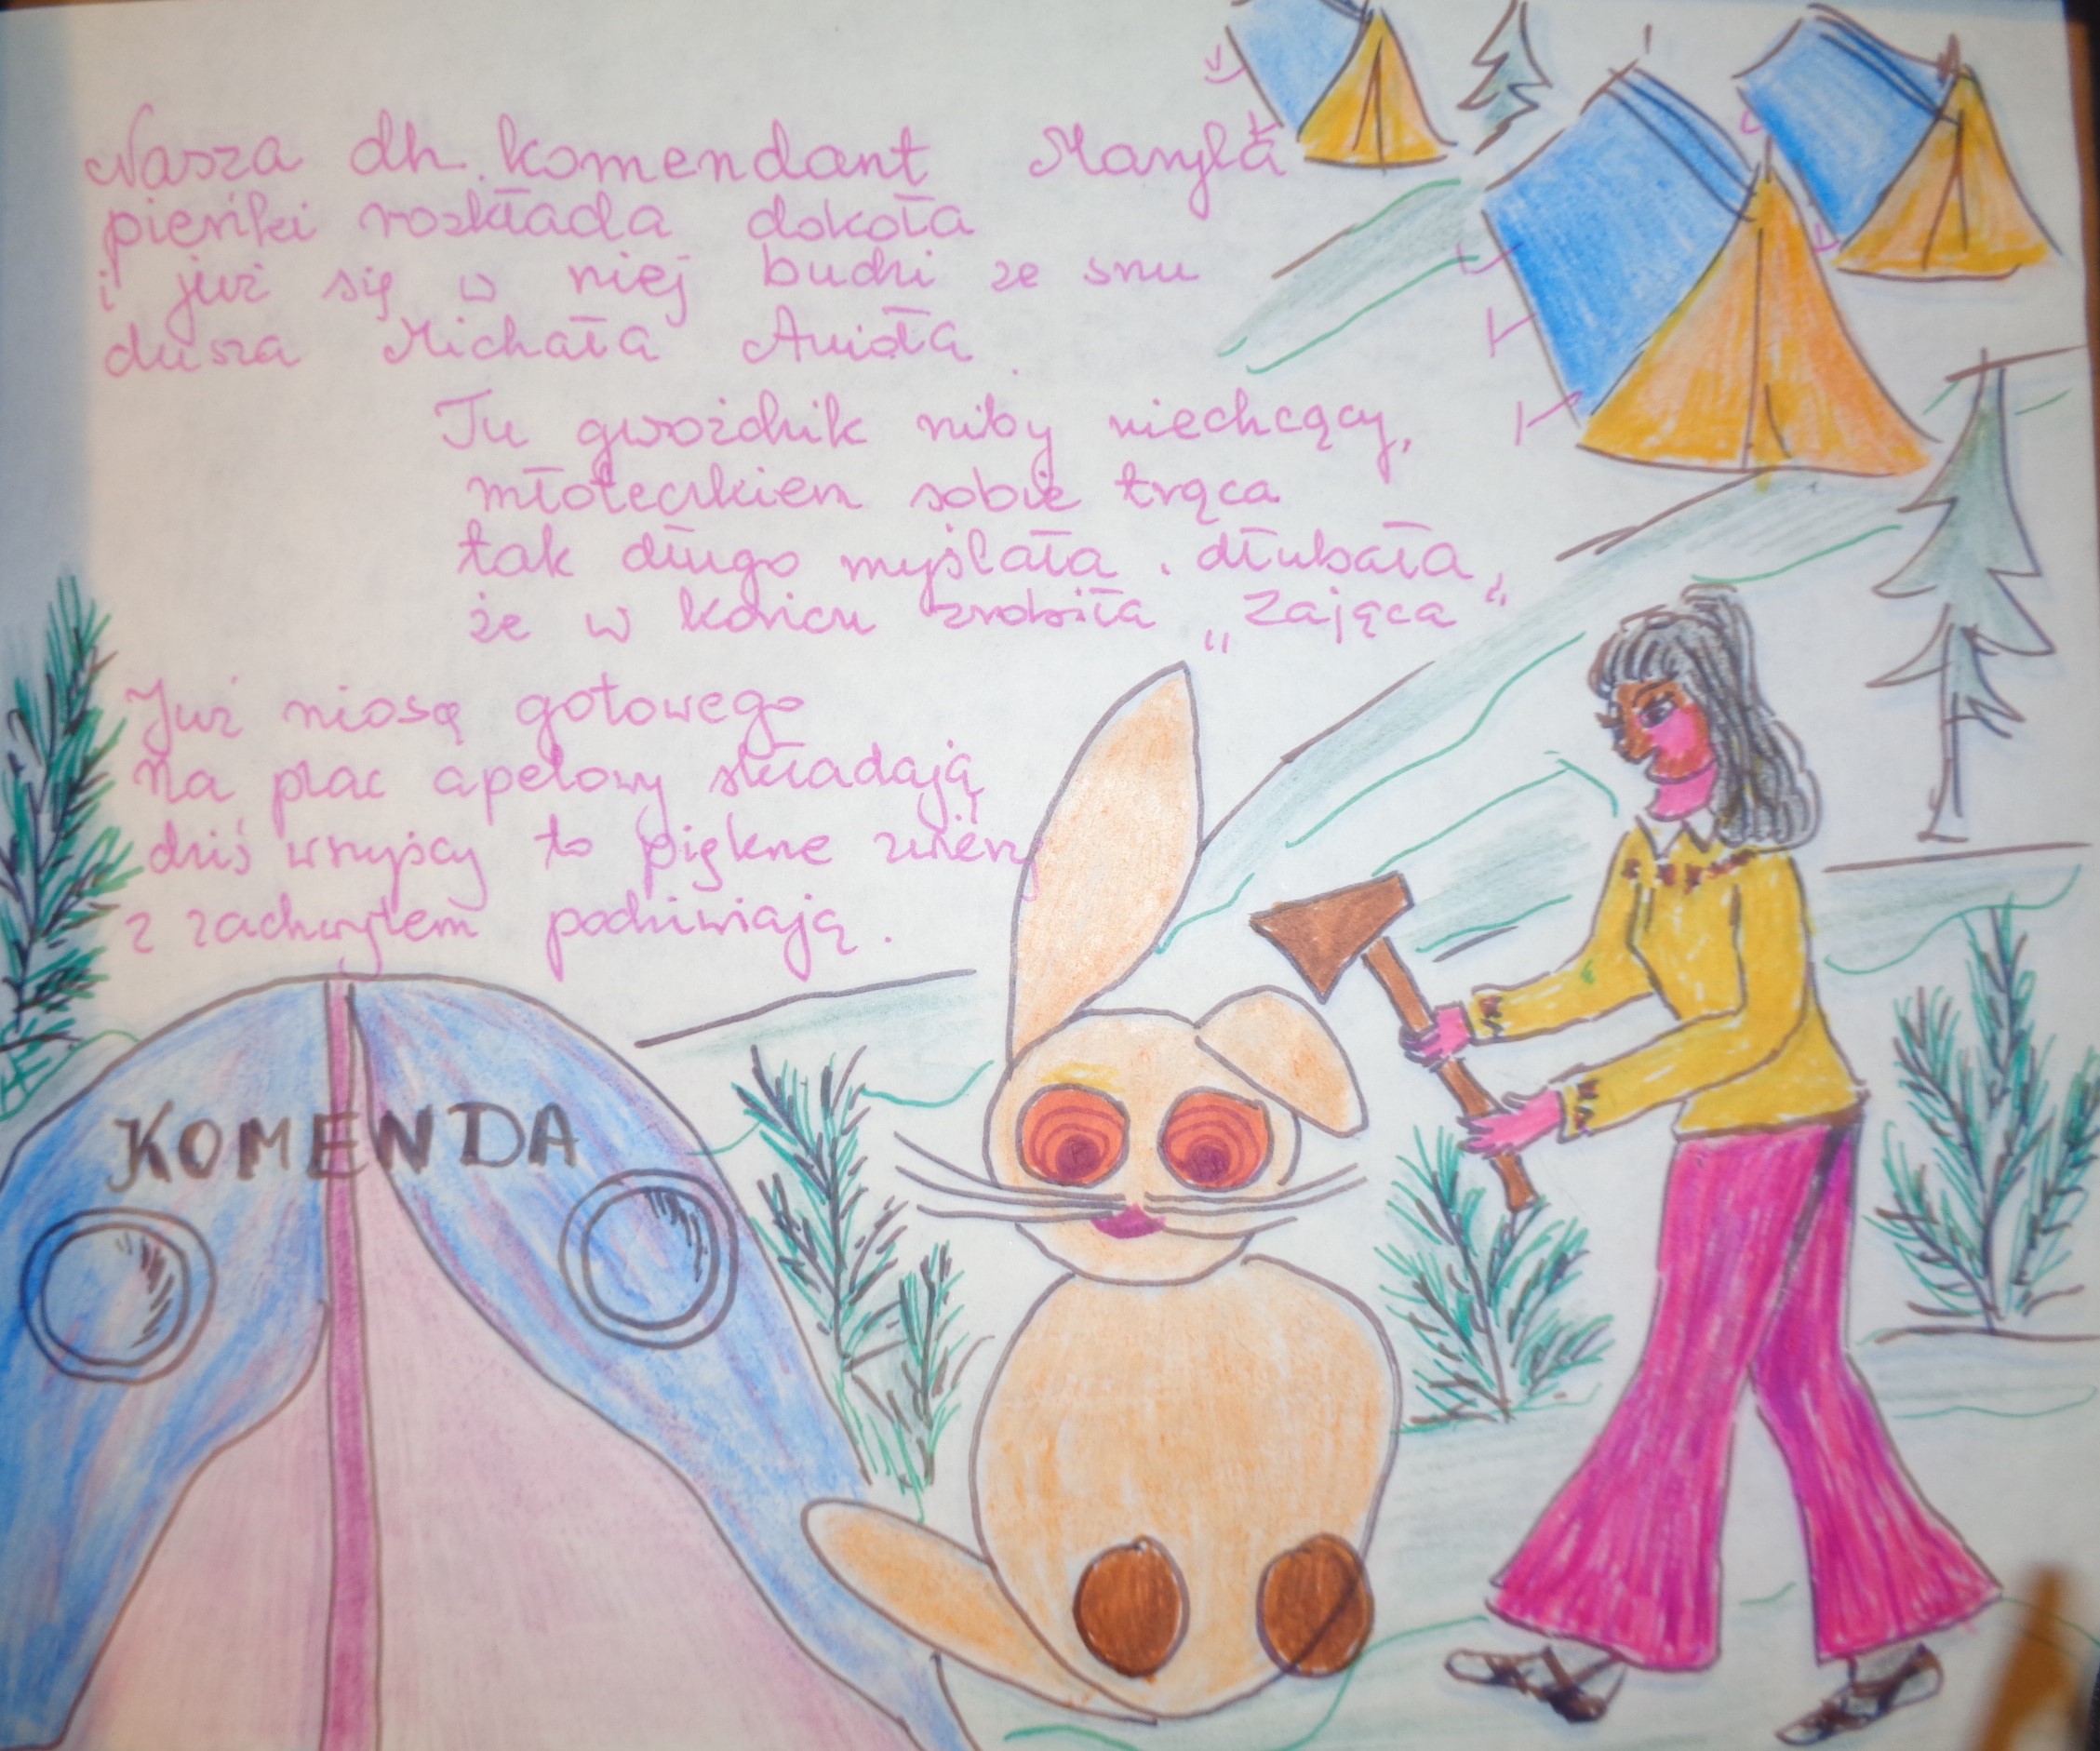 Nasza dh. komendant Maryla
pieńki rozkłada dokoła
i już się w niej budzi ze snu
dusza Michała Anioła.
Tu gwoździk niby niechcący,
młoteczkiem sobie trąca
tak długo myślała, dłubała,
że w końcu zrobiła „Zająca"
Już niosą gotowego
na plac apelowy składają
dziś wszyscy to piękne zwierzę
z zachwytem podziwiają.
KOMENDA